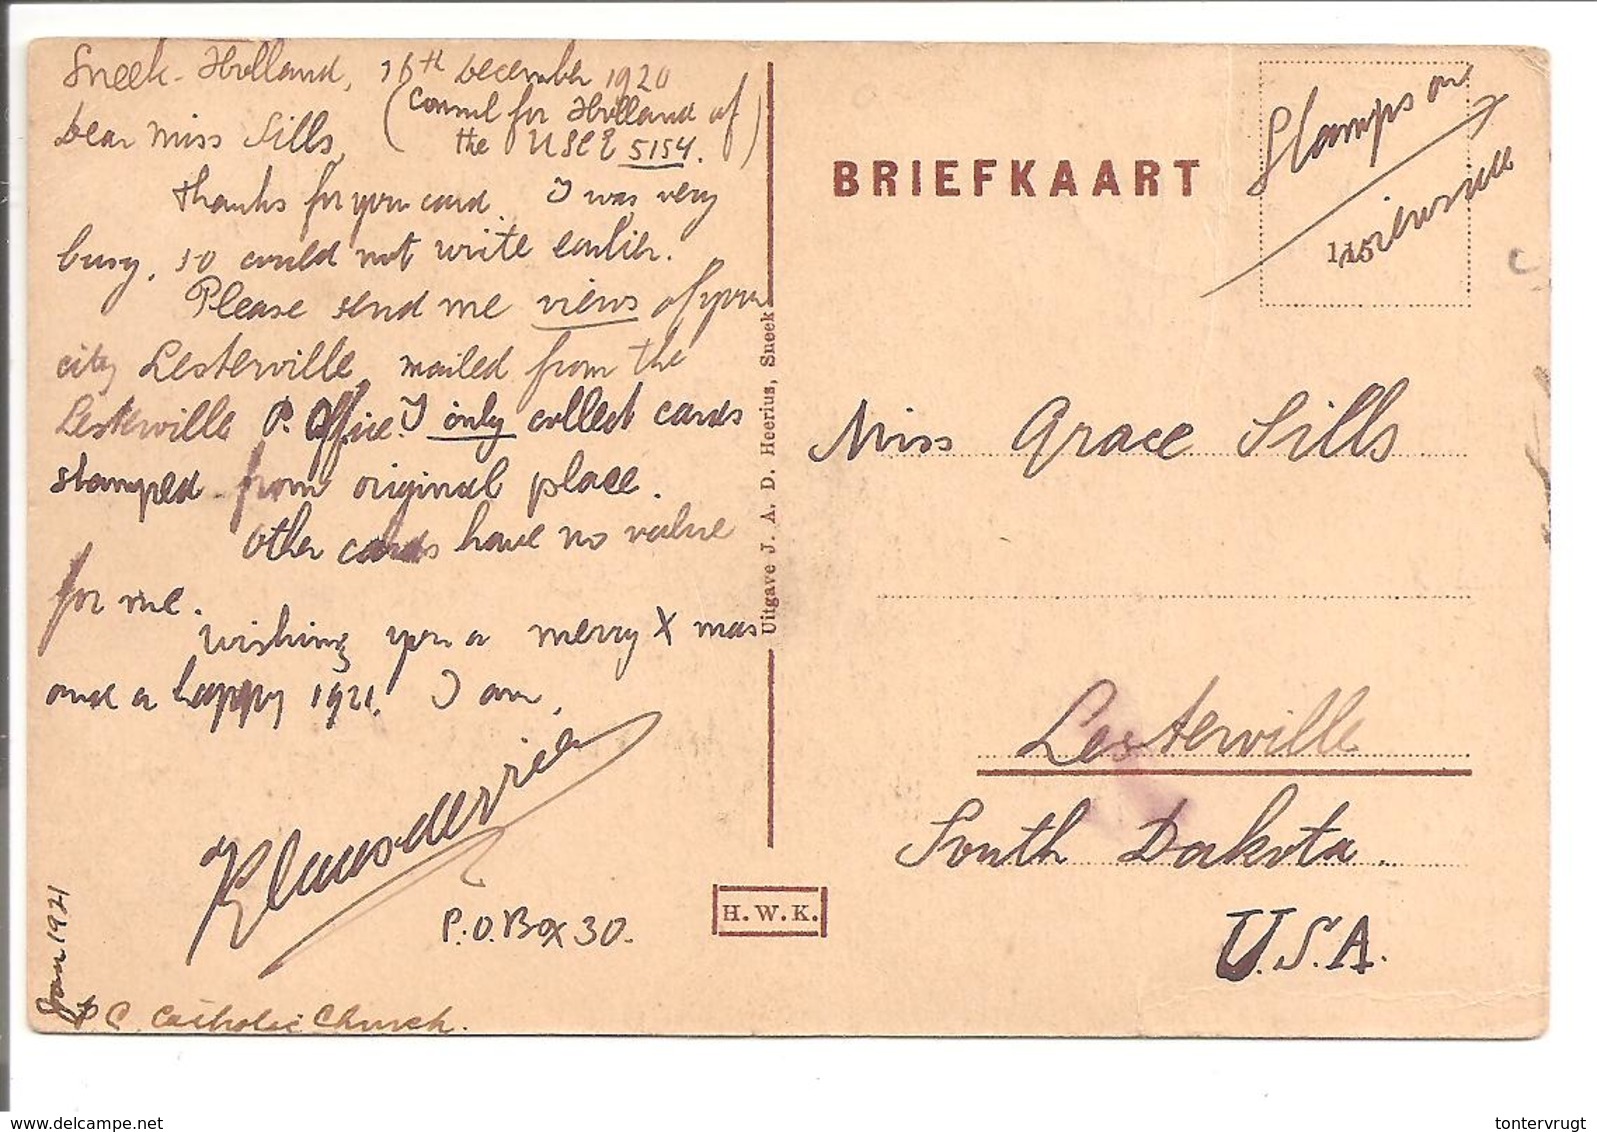 Sneek-Holland, 16th december 1920
(Consul for Holland of
the USCE 5154.)
Dear Miss Sills,
Thanks for your card. I was very
busy, so could not write earlier.
Please send me views of your
city Lesterville mailed from the
Lesterville P. Office. I only collect cards
stamped from original place.
Other cards have no value
for me.
Wishing you a merry Xmas
and a happy 1921. I am,
Klaas de Vries
P.O. Box 30.
Jan 1921
PC. Catholic Church.
Uitgave J. A. D. Heerius, Sneek
H.W.K.
BRIEFKAART
Stamps on
viewside
Miss Grace Sills
Lesterville
South Dakota.
U.S.A.
delcampe.net
tontervrugt